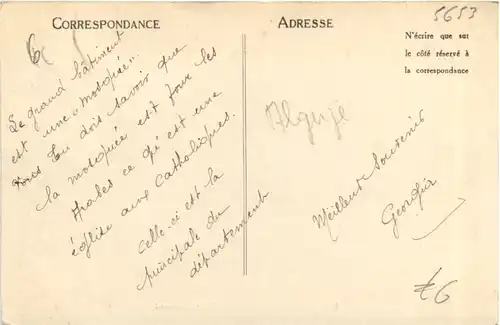 CORRESPONDANCE
ADRESSE
5653
N'écrire que sur
le côté réservé à
la correspondance
6
Le grand bâtiment
est une "mosquée".
Tu dois savoir que
la mosquée est pour les
Arabes ce qu'est une
église aux Catholiques.
Celle-ci est la
principale du
département
Algérie
Meilleurs Souvenirs
Georgia
£6